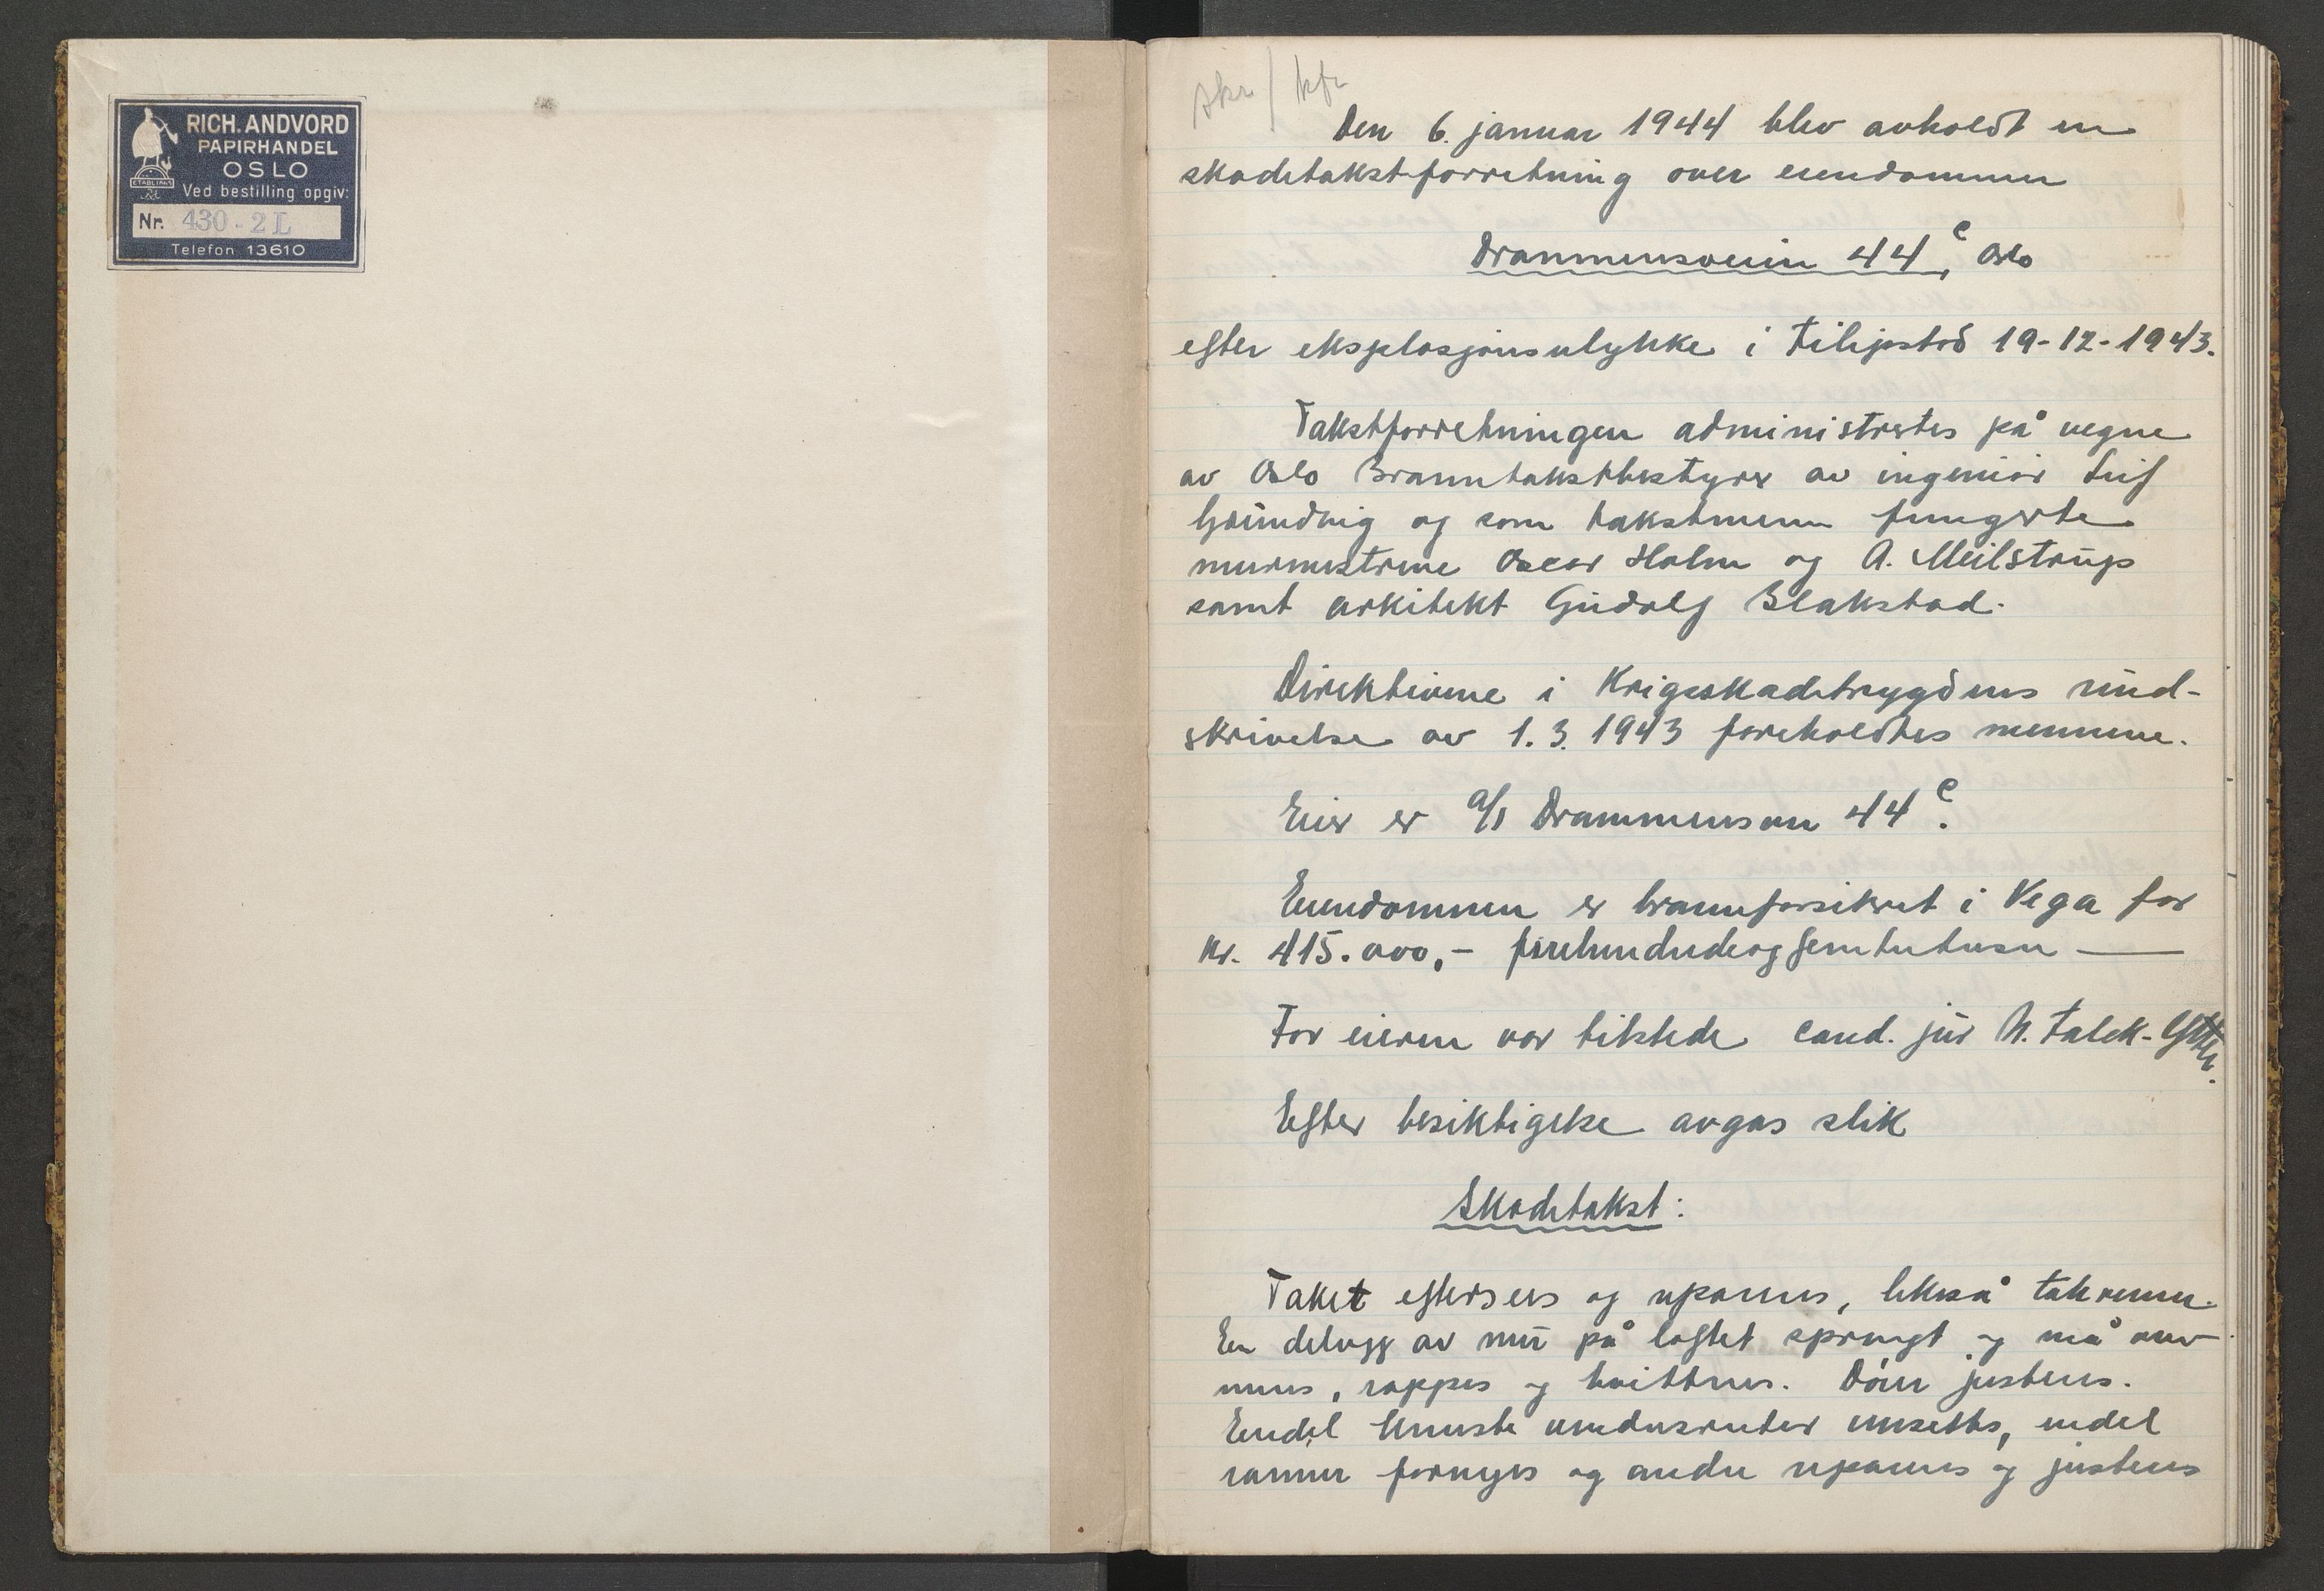 RICH. ANDVORD
PAPIRHANDEL
OSLO
ETABLERT
Ved bestilling opgiv:
Nr. 430-2L
Telefon 13610
skr / kfr
Den 6. januar 1944 blev avholdt en
skadetakstforretning over eiendommen
Drammensveien 44c, Oslo
efter eksplosjonsulykke i Filipstad 19-12-1943.
Takstforretningen administrertes på vegne
av Oslo Branntakstbestyrer av ingeniør Leif
Grundvig og som takstmenn fungerte
murmestrene Oscar Holm og A. Meilstrup
samt arkitekt Gudolf Blakstad.
Direktivene i Krigsskadetrygdens rund-
skrivelse av 1.3.1943 foreholdtes mennene.
Eier er A/S Drammensvn 44c.
Eiendommen er brannforsikret i Vega for
kr. 415.000,- firehundredeogfemtentusen —
For eieren var tilstede cand. jur N. Falck-
Efter besiktigelse avgas slik
Skadetakst:
Taket eftersees og repareres, likeså takrenner.
En delvegg av mur på loftet sprengt og må om-
mures, rappes og hvittes. Dører justeres.
Endel knuste vindusruter innsettes, endel
rammer fornyes og andre repareres og justeres